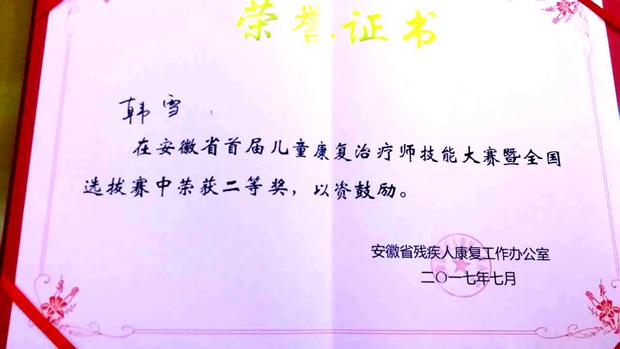 荣誉证书
韩雪：
在安徽省首届儿童康复治疗师技能大赛暨全国
选拔赛中荣获二等奖，以资鼓励。
安徽省残疾人康复工作办公室
二〇一七年七月